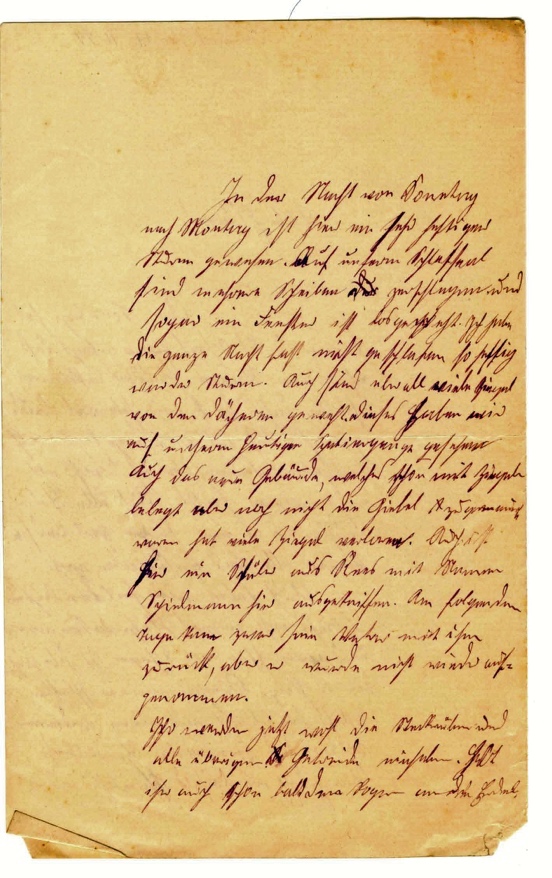 In der Nacht von Sonntag
nach Montag ist hier ein sehr heftiger
Sturm gewesen. Auf unserem Schlafsaal
sind mehrere Scheiben zerschlagen und
sogar ein Fenster ist Ich habe
die ganze Nacht fast nicht geschlafen so heftig
war der Sturm. Auch sind überall viele Ziegel
von den Dächern geweht. dieses haben wir
auf unserem heutigen Spaziergange gesehen
Auch das neue Gebäude, welches schon mit Ziegeln
belegt aber noch nicht die Giebel
waren hat viele Ziegel verloren. Auch ist
hier ein Schüler aus Rees mit Namen
hier ausgekniffen. Am folgenden
Tage kam zwar sein Vater mit ihm
zurück, aber er wurde nicht wieder auf-
genommen.
werden jetzt wohl die Steckrüben und
alle übrigen Getreide einholen. Habt
ihr auch schon bald den